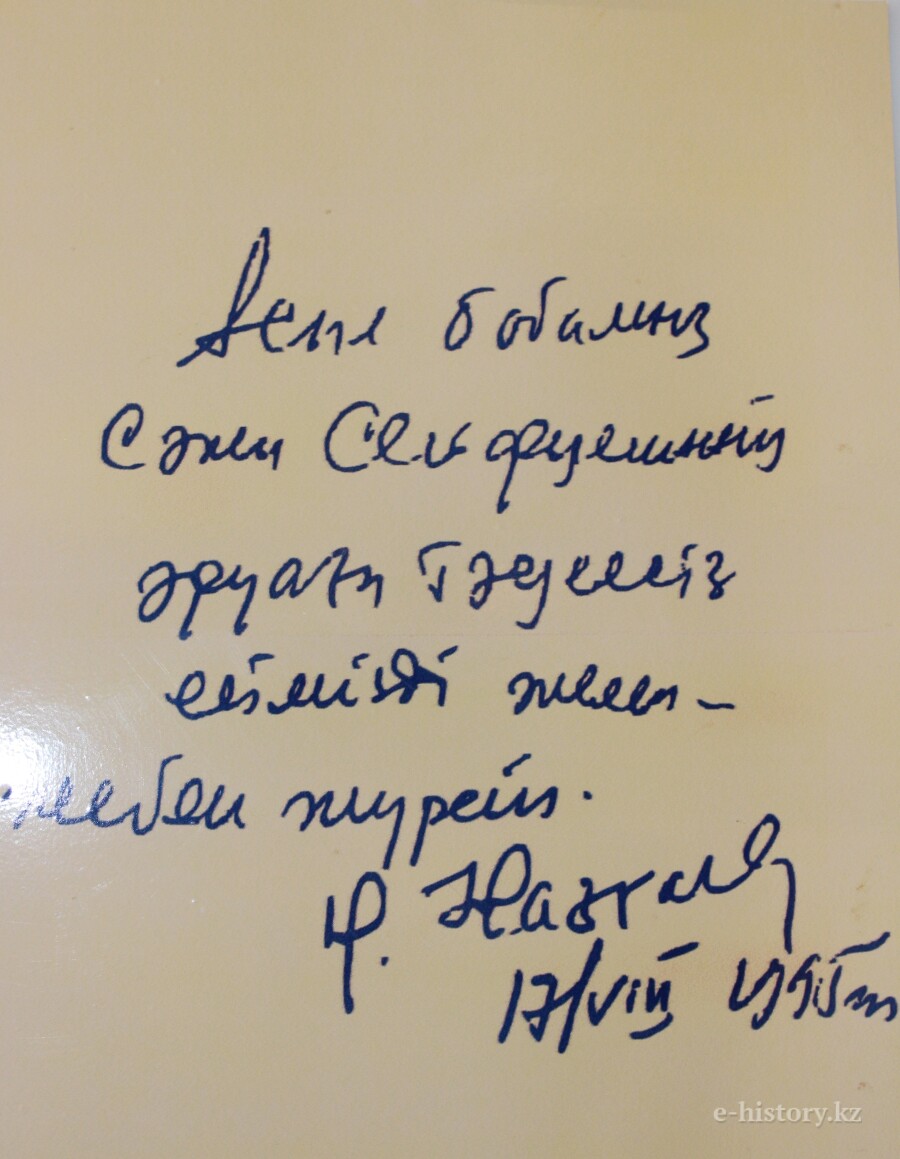 бобамыз
Сәкен Сейфуллиннің
әруағы Тәуелсіз
елімізді желеп-
жебеп жүрсін.
17/VIII 1995ж
e-history.kz